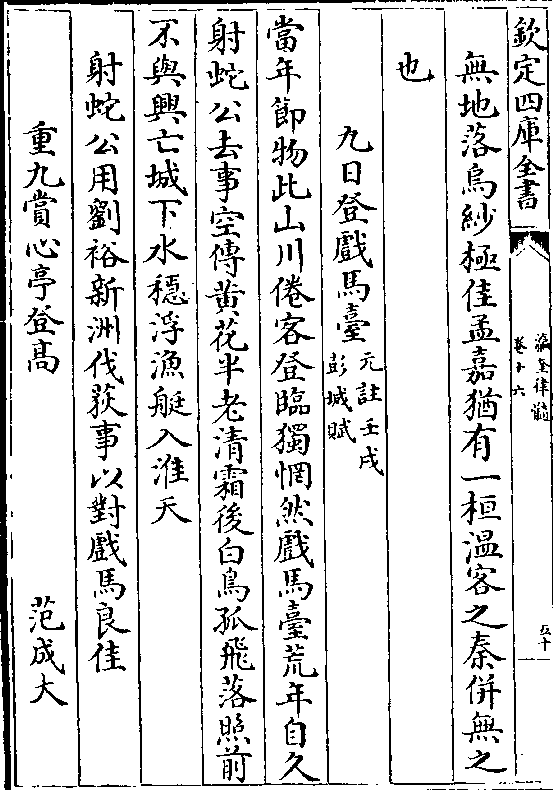 欽定四庫全書
瀛奎律髓
卷十六
五十
無地落烏紗極佳孟嘉猶有一桓溫客之秦併無之
也
九日登戲馬臺
元註壬戌
彭城賦
當年節物此山川倦客登臨獨惘然戲馬臺荒年自久
射蛇公去事空傳黃花半老清霜後白鳥孤飛落照前
不與興亡城下水穩浮漁艇入淮天
射蛇公用劉裕新洲伐荻事以對戲馬良佳
重九賞心亭登高 范成大